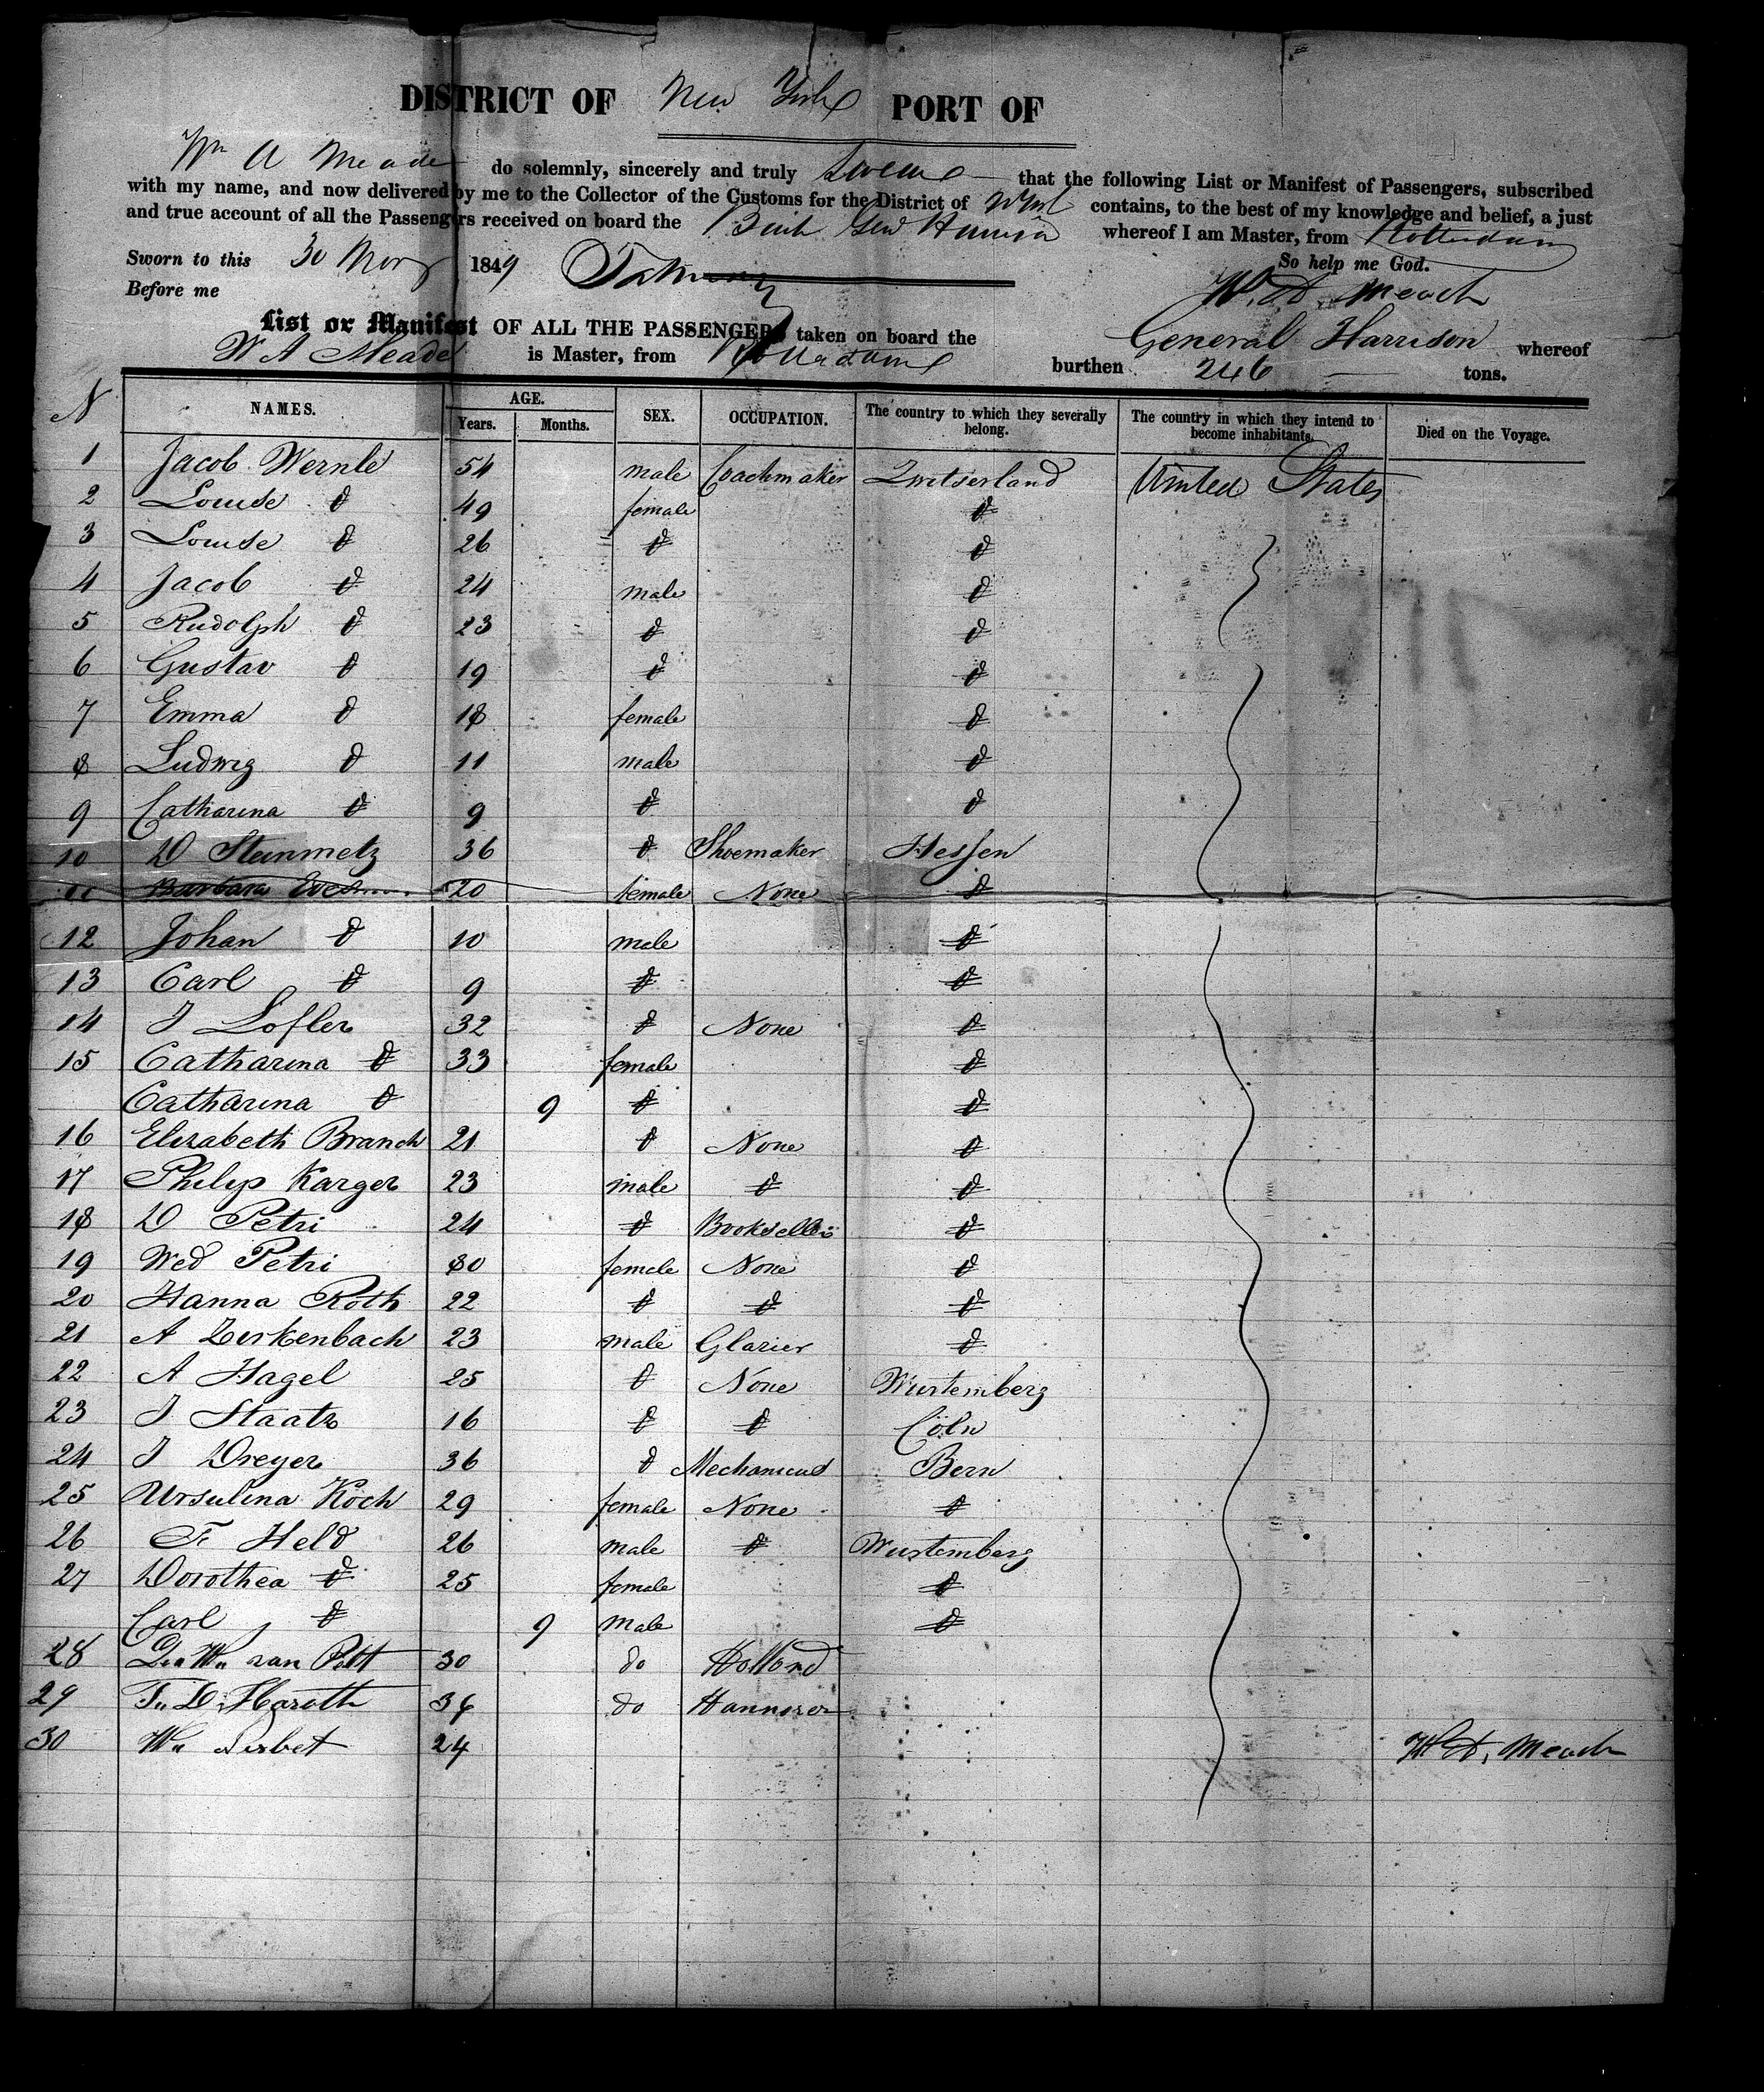 DISTRICT OF New York PORT OF
Wm A Meade do solemnly, sincerely and truly Swear that the following List or Manifest of Passengers, subscribed
with my name, and now delivered by me to the Collector of the Customs for the District of NYork contains, to the best of my knowledge and belief, a just
and true account of all the Passengers received on board the Gen Harrison whereof I am Master, from Rotterdam
Sworn to this 30 1849 So help me God.
Before me W. A. Meade
List or Manifest OF ALL THE PASSENGERS taken on board the General Harrison whereof
W A Meade is Master, from Rotterdam burthen 246 tons.
N NAMES. AGE. Years. Months. SEX. OCCUPATION. The country to which they severally belong. The country in which they intend to become inhabitants. Died on the Voyage.
1 Jacob Wernle 54 male Coachmaker Zwitserland United States
2 Louise d 49 female d
3 Louise d 26 d d
4 Jacob d 24 male d
5 Rudolph d 23 d d
6 Gustav d 19 d d
7 Emma d 18 female d
8 Ludwig d 11 male d
9 Catharina d 9 d d
10 D Steinmetz 36 d Shoemaker Hessen
11 Barbara 20 female None d
12 Johan d 10 male d
13 Carl d 9 d d
14 J Lofler 32 d None d
15 Catharina d 33 female d
Catharina d 9 d d
16 Elizabeth Branch 21 d None d
17 Philip Karger 23 male d d
18 D Petri 24 d Bookseller d
19 Wed Petri 80 female None d
20 Hanna Roth 22 d d d
21 A Zerkenbach 23 male Glazier d
22 A Hagel 25 d None Wurtemberg
23 J Staatz 16 d d Cöln
24 J Dreyer 36 d Mechanicus Bern
25 Ursulina Koch 29 female None d
26 F. Held 26 male d Wurtemberg
27 Dorothea d 25 female d
Carl d 9 male d
28 van Pelt 30 do Holland
29 34 do Hannover
30 Wm 24 W A. Meade